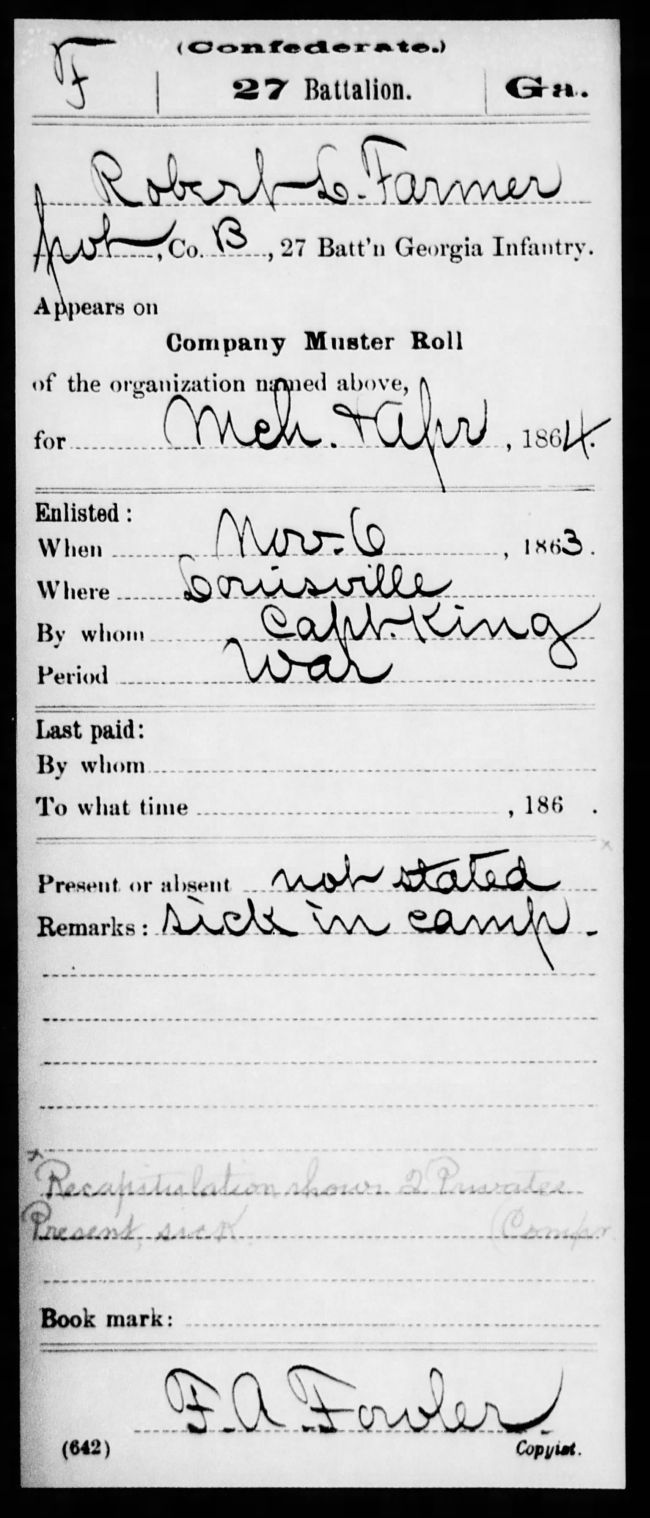 (Confederate.)
F | 27 Battalion. | Ga.
Robert L. Farmer
pvt, Co. B, 27 Batt'n Georgia Infantry.
Appears on
Company Muster Roll
of the organization named above,
for Mch. & Apr, 1864.
Enlisted:
When Nov. 6, 1863.
Where Louisville
By whom Capt. King
Period War
Last paid:
By whom
To what time , 186 .
x
Present or absent not stated
Remarks: sick in camp.
x Recapitulation shows 2 Privates
Present, sick (Compr
Book mark:
F. A. Fowler
(642) Copyist.